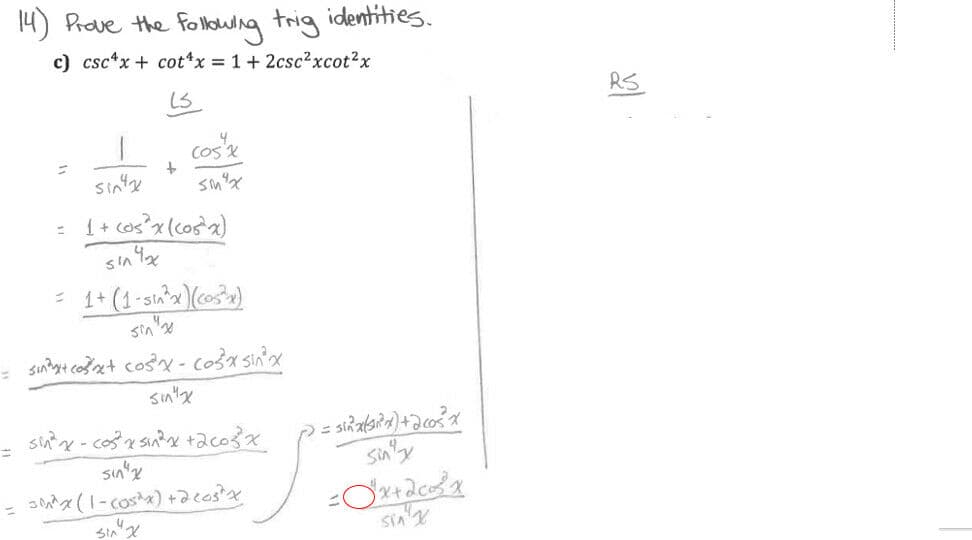 14) Prove the following trig identities.
c) csc⁴x + cot⁴x = 1 + 2csc²xcot²x
LS
= 1/sin⁴x + cos⁴x/sin⁴x
= (1 + cos²x(cos²x))/sin⁴x
= (1 + (1-sin²x)(cos²x))/sin⁴x
= (sin²x + cos²x + cos²x - cos²x sin²x)/sin⁴x
= (sin²x - cos²x sin²x + 2cos²x)/sin⁴x
= (sin²x(1-cos²x) + 2cos²x)/sin⁴x
= (sin²x(sin²x) + 2cos²x)/sin⁴x
= (⁴x + 2cos²x)/sin⁴x
RS